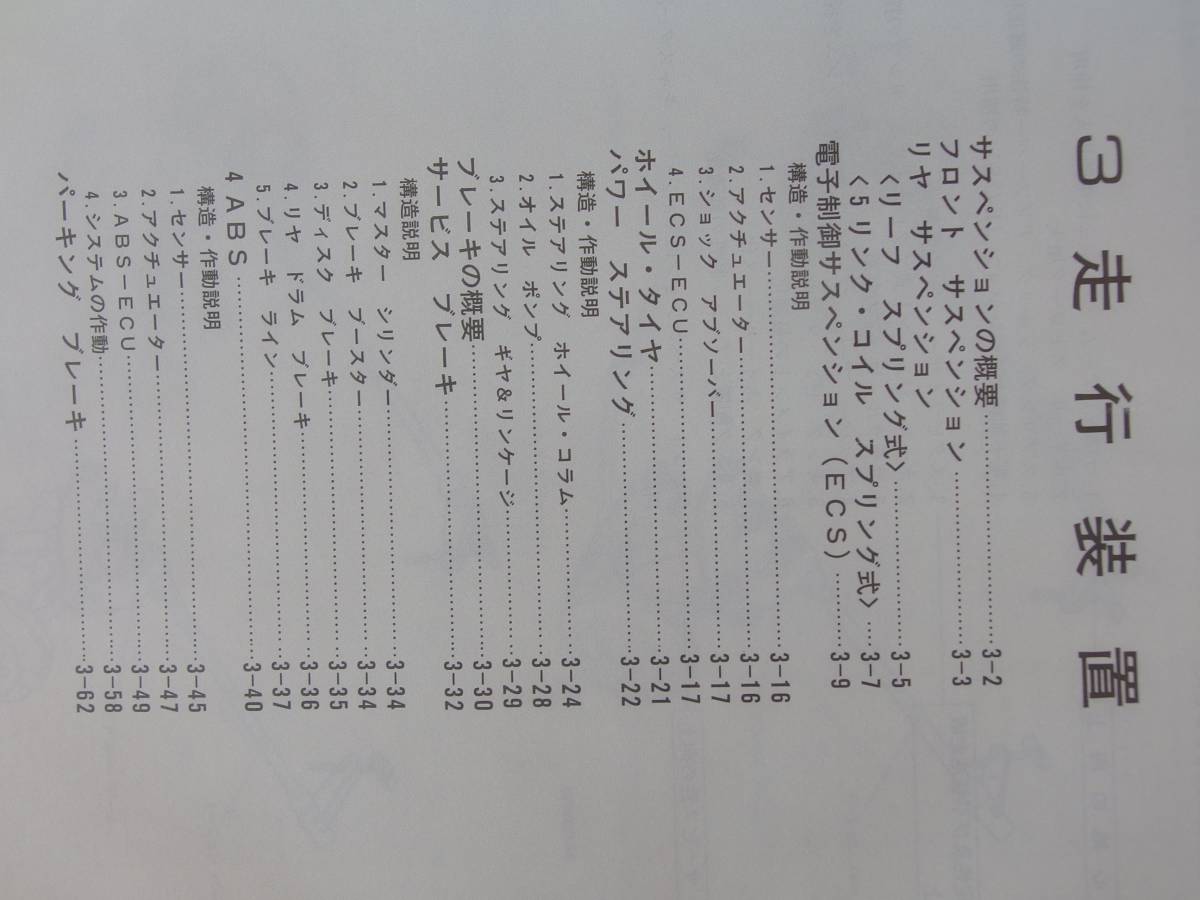 3 走行装置
サスペンションの概要……3-2
フロント サスペンション……3-3
リヤ サスペンション
〈リーフ スプリング式〉……3-5
〈5リンク・コイル スプリング式〉…3-7
電子制御サスペンション(ECS)……3-9
構造・作動説明
1.センサー……3-16
2.アクチュエーター……3-16
3.ショック アブソーバー……3-17
4.ECS-ECU……3-17
ホイール・タイヤ……3-21
パワー ステアリング……3-22
構造・作動説明
1.ステアリング ホイール・コラム……3-24
2.オイル ポンプ……3-28
3.ステアリング ギヤ&リンケージ……3-29
ブレーキの概要……3-30
サービス ブレーキ……3-32
構造説明
1.マスター シリンダー……3-34
2.ブレーキ ブースター……3-34
3.ディスク ブレーキ……3-35
4.リヤ ドラム ブレーキ……3-36
5.ブレーキ ライン……3-37
4ABS……3-40
構造・作動説明
1.センサー……3-45
2.アクチュエーター……3-47
3.ABS-ECU……3-49
4.システムの作動……3-58
パーキング ブレーキ……3-62